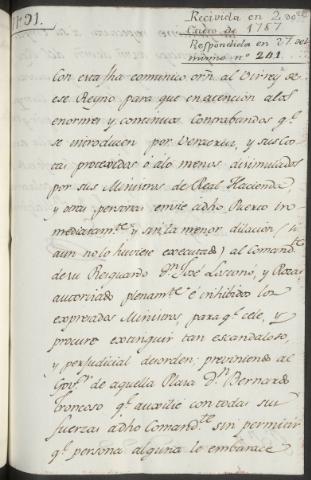 Recivida en 2. de
Enero de 1787
Respóndida en 27. del
mismo nº 241
Con esta fha comunico orñ. al Virrey de
ese Reyno para que en atencion a los
enormes y continuos Contrabandos q.e
se introducen por Veracruz, y sus Cos
tas protexidos ó alo menos disimulados
por sus Ministros de Real Hacienda,
y otras personas envie adho Puerto in
mediatam.te y sin la menor dilacion (si
aun no lo huviere executado) al Comand.te
de su Resguardo D.n Josè Lascano, y Rocas
autorizado plenam.te é inhibidos los
expresados Ministros para q.e cele, y
procure extinguir tan escandaloso,
y perjudicial desorden; previniendo al
Gov.or de aquella Plaza D.n Bernardo
Troncoso q.e auxilie con todas sus
fuerzas adho Comand.te sin permitir
q.e persona alguna le embarace